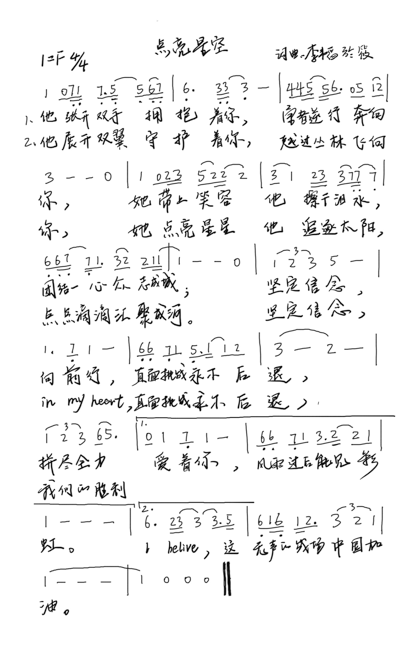 点亮星空
1=F 4/4
词曲:李
1 071 7.5 567 | 6. 33 3 - | 445 56. 05 12 |
1.他张开双手 拥抱着你, 逆行 奔向
2.他展开双翼 守护着你, 越过丛林飞向
3 - - 0 | 1 023 522 2 | 3 1 23 377 7 |
你, 她带上笑容 他 擦干泪水,
你, 她点亮星星 他 追逐太阳,
667 71. 32 211 | 1 - - 0 | 1 2 3 5 - |
团结一心众志成城; 坚定信念,
点点滴滴汇聚成河。 坚定信念,
1. 7 1 - | 66 71 5.1 1 2 | 3 - 2 - |
向前行, 直面挑战永不后退,
in my heart, 直面挑战永不后退,
1 2 3 65. | 0 1 7 1 - | 66 71 3.2 2 1 |
拼尽全力 爱着你, 风雨过后能见彩
我们的胜利
1 - - - | 6. 23 3 3.5 | 616 12. 3 2 1 |
虹。 I belive, 这 无声的战场中国加
1 - - - | 1 0 0 0 ‖
油。